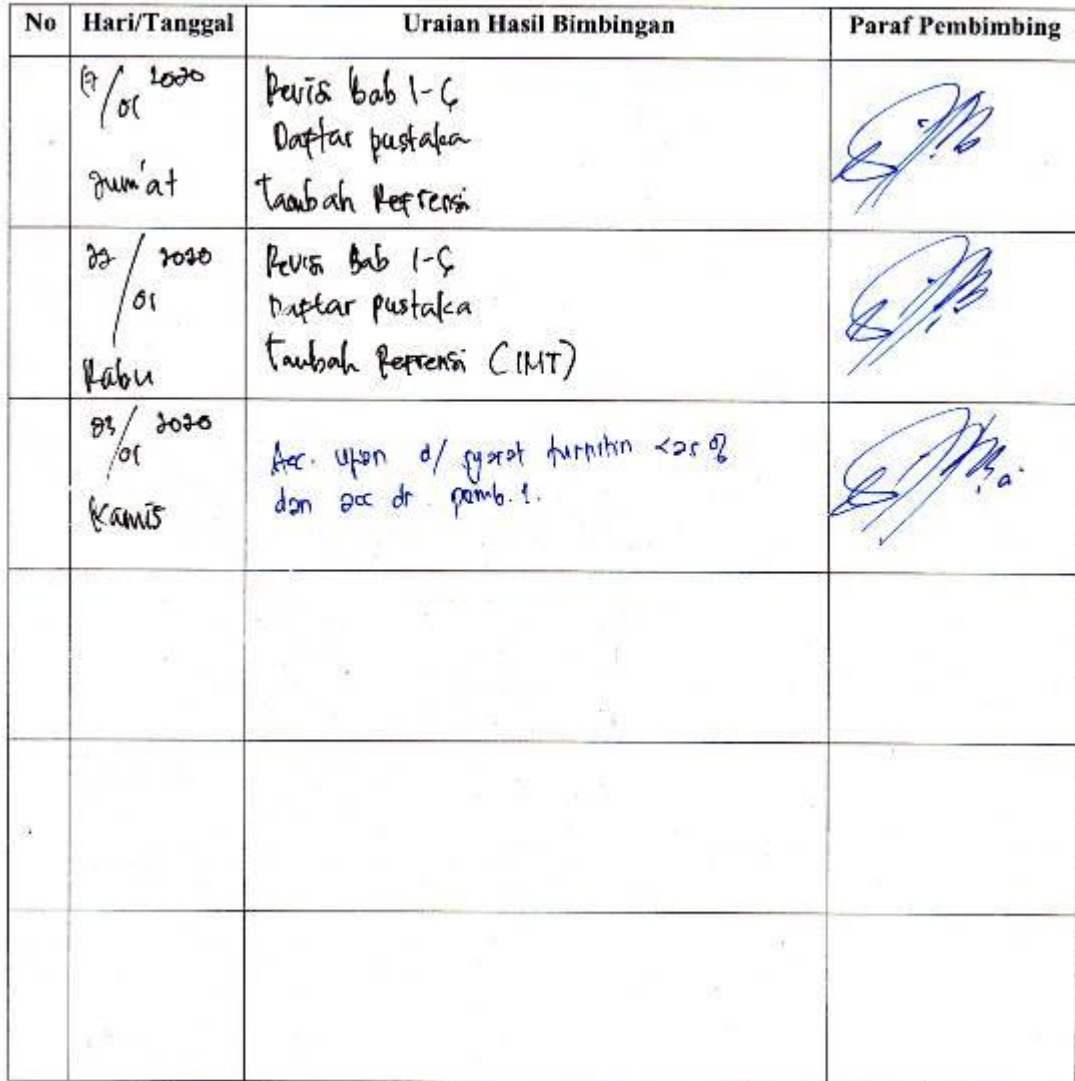 No Hari/Tanggal Uraian Hasil Bimbingan Paraf Pembimbing
17/01 2020
Jum'at
Revisi bab 1-5
Daftar pustaka
Tambah Refrensi
22/01 2020
Rabu
Revisi Bab 1-5
Daftar pustaka
Tambah Refrensi (IMT)
23/01 2020
Kamis
Acc. ujian d/ syarat turnitin <25%
dan acc dr. pemb. 1.